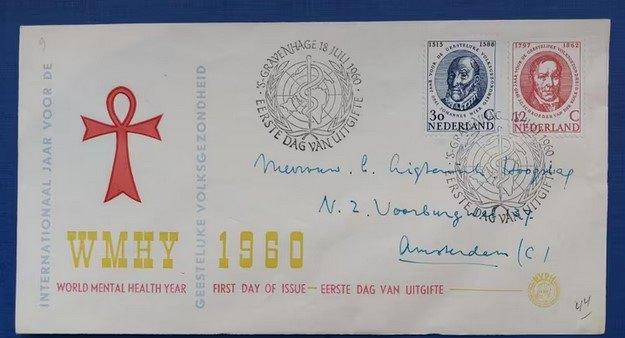 9
INTERNATIONAAL JAAR VOOR DE
GEESTELIJKE VOLKSGEZONDHEID
WMHY 1960
WORLD MENTAL HEALTH YEAR FIRST DAY OF ISSUE — EERSTE DAG VAN UITGIFTE
'S-GRAVENHAGE 18 JULI 1960
EERSTE DAG VAN UITGIFTE
1515 1588
JAAR VOOR DE GEESTELIJKE VOLKSGEZONDHEID
JOHANNES WIER
30 C
NEDERLAND
1797 1862
JAAR VOOR DE GEESTELIJKE VOLKSGEZONDHEID
12 C
NEDERLAND
1960
EERSTE DAG VAN UITGIFTE
Mevrouw C.
N. Z. Voorburgwal
Amsterdam (C)
NVPH
44